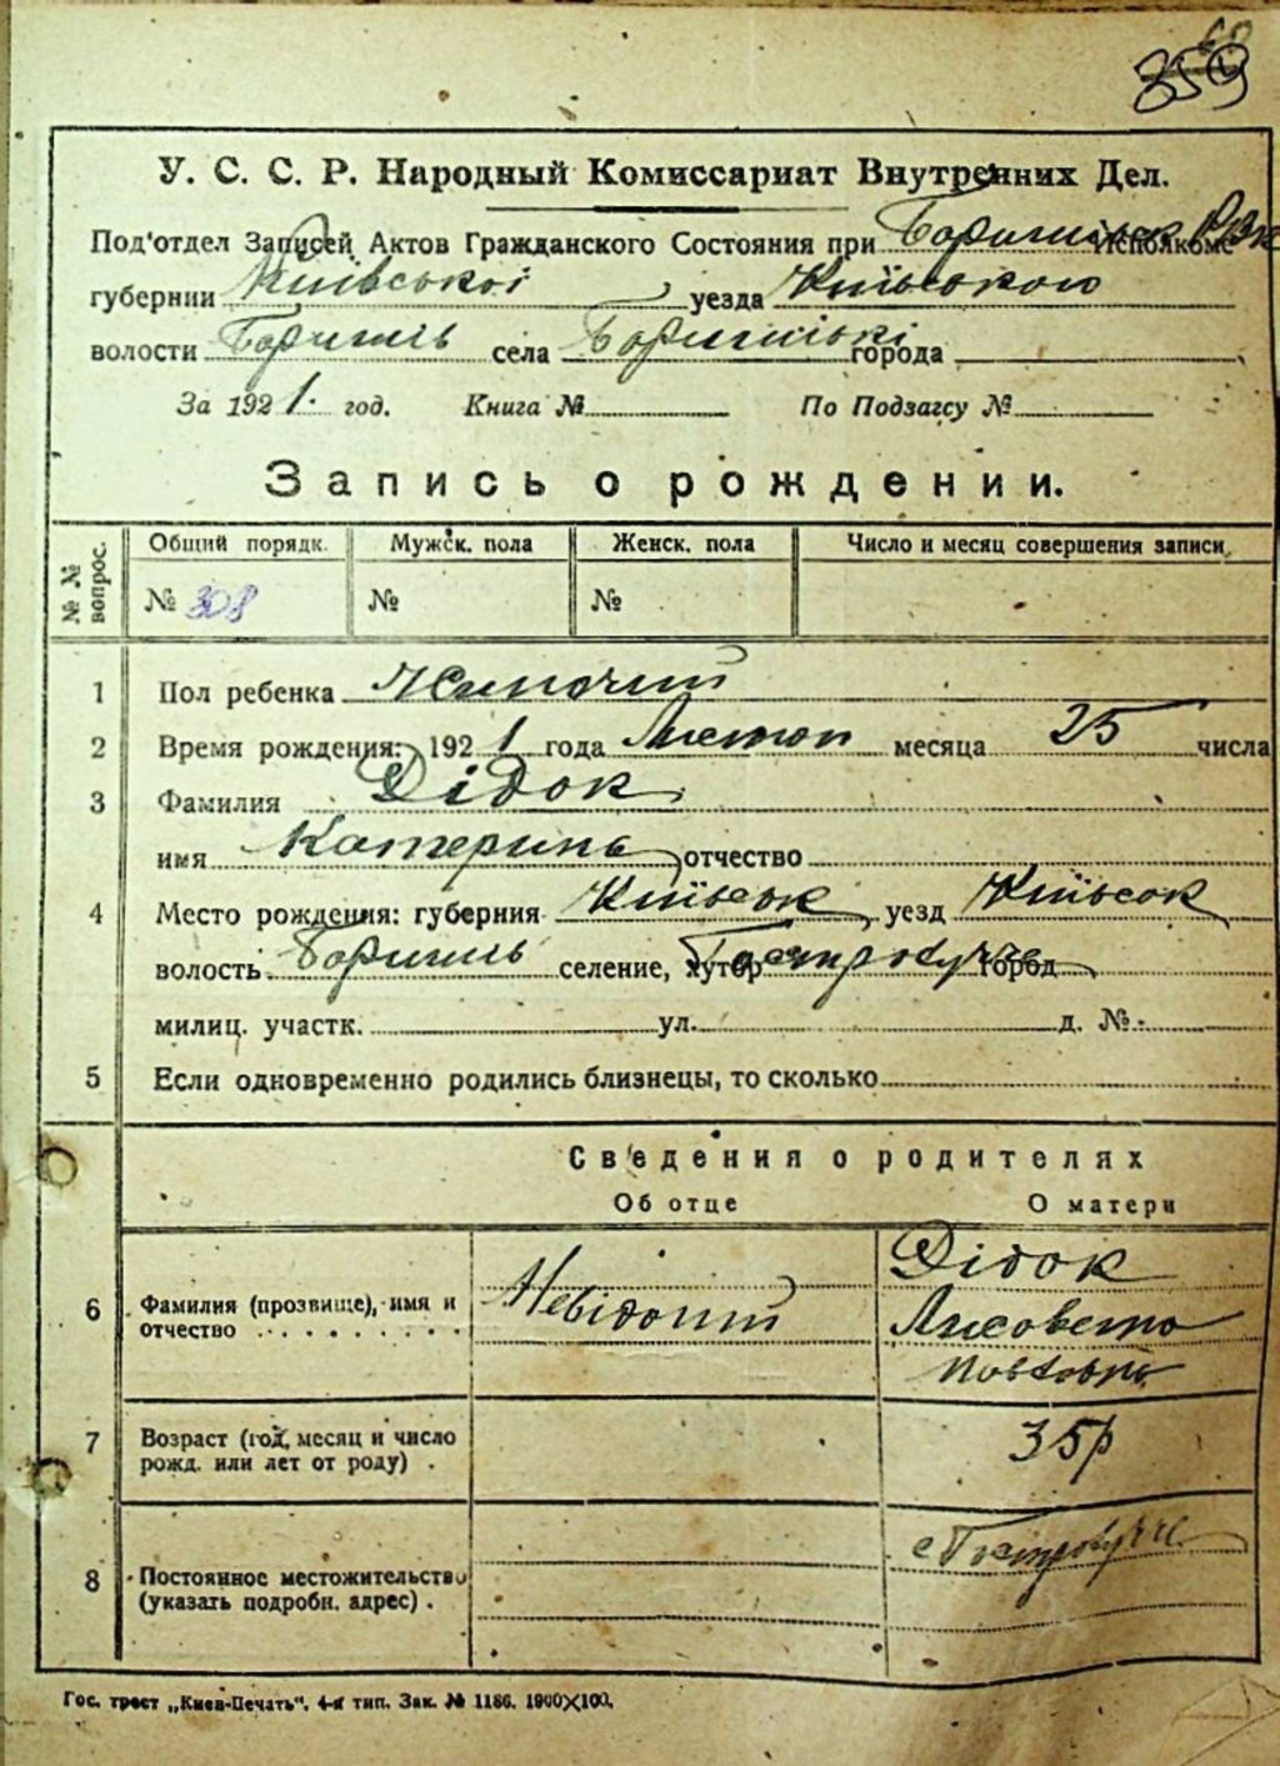 359
У. С. С. Р. Народный Комиссариат Внутренних Дел.
Под'отдел Записей Актов Гражданского Состояния при Исполкоме
губернии Київської уезда Київського
волости Бориспіль села города
За 1921. год. Книга № По Подзагсу №
Запись о рождении.
№ № вопрос. Общий порядк. Мужск. пола Женск. пола Число и месяц совершения записи
№ 308 № №
1 Пол ребенка Жиночий
2 Время рождения: 1921 года Листоп месяца 25 числа
3 Фамилия Дідок
имя Катерина отчество
4 Место рождения: губерния Київськ уезд Київськ
волость Бориспіль селение, хутор город
милиц. участк. ул. д. №
5 Если одновременно родились близнецы, то сколько
Сведения о родителях
Об отце О матери
6 Фамилия (прозвище), имя и отчество Невідомий Дідок Лисовета
7 Возраст (год, месяц и число рожд. или лет от роду) . 35р
8 Постоянное местожительство (указать подробн. адрес) . с
Гос. трест „Киев-Печать“. 4-я тип. Зак. № 1186. 1900×100.